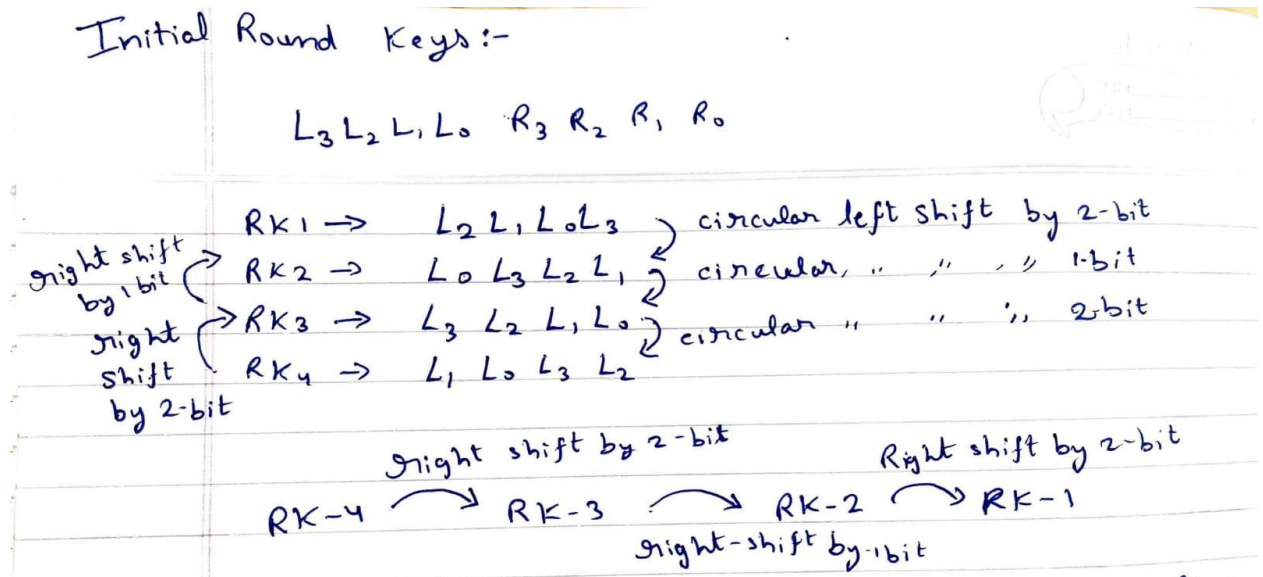 Initial Round Keys:-
L3 L2 L1 L0 R3 R2 R1 R0
RK1 → L2 L1 L0 L3 circular left shift by 2-bit
right shift by 1 bit RK2 → L0 L3 L2 L1 circular, " " " 1-bit
right shift by 2-bit RK3 → L3 L2 L1 L0 circular " " " 2-bit
RK4 → L1 L0 L3 L2
right shift by 2-bit Right shift by 2-bit
RK-4 RK-3 RK-2 RK-1
right-shift by 1bit